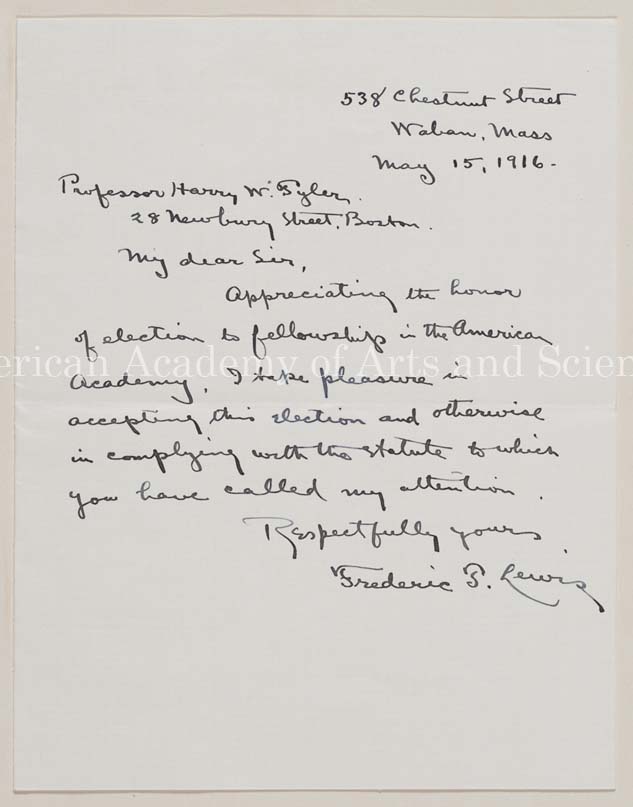 538 Chestnut Street
Waban, Mass
May 15, 1916.
Professor Harry W. Tyler,
28 Newbury Street, Boston.
My dear Sir,
Appreciating the honor
of election to fellowship in the American
Academy, I take pleasure in
accepting this election and otherwise
in complying with the statute to which
you have called my attention.
Respectfully yours,
Frederic T. Lewis
erican Academy of Arts and Scien